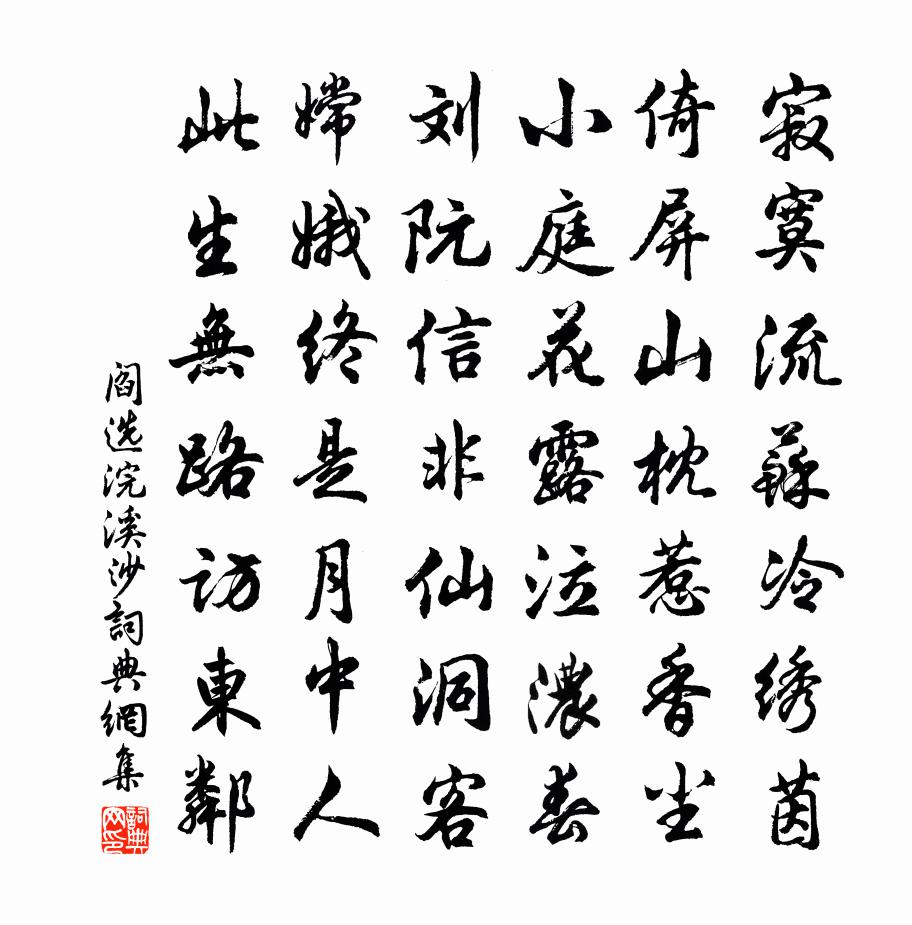 寂寞流蘇冷绣茵
倚屏山枕惹香尘
小庭花露泣濃春
刘阮信非仙洞客
嫦娥终是月中人
此生無路访東鄰
阎选浣溪沙詞典網集
詞典网印